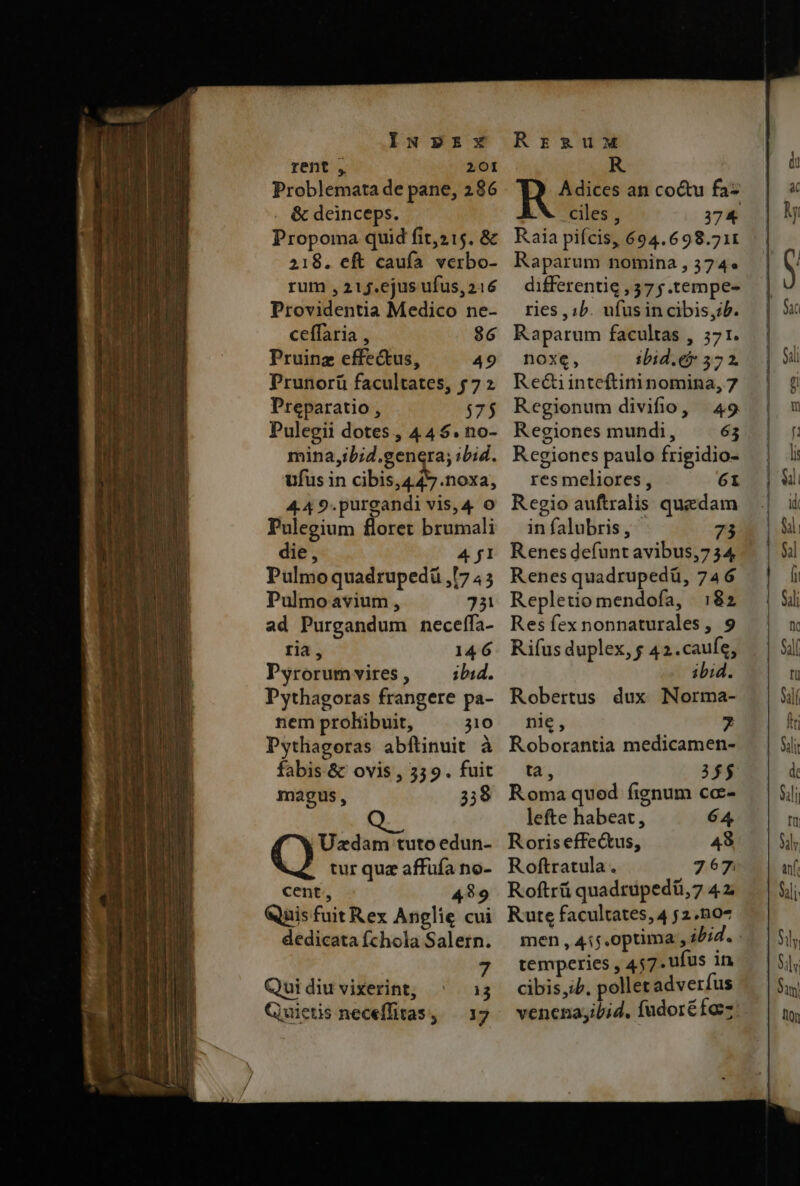 INDEX
rent, 201
Problemata de pane, 286
& deinceps.
Propoma quid fit, 215. &
218. eſt cauſa verbo-
rum, 215. ejus uſus, 216
Providentia Medico ne-
ceſſaria, 86
Pruinæ effectus, 49
Prunorũ facultates, 572
Pręparatio, 575
Pulegii dotes, 446. no-
mina, ibid. genera; ibid.
uſus in cibis, 447. noxa,
449. purgandi vis, 4 0
Pulegium floret brumali
die, 451
Pulmo quadrupedũ, [743
Pulmo avium, 731
ad Purgandum neceſſa-
ria, 146
Pyrorum vires, ibid.
Pythagoras frangere pa-
nem prohibuit, 310
Pythagoras abſtinuit à
fabis & ovis, 339. fuit
magus, 338
Q
QUædam tuto edun-
tur quæ affuſa no-
cent, 489
Quis fuit Rex Anglię cui
dedicata ſchola Salern.
7
Qui diu vixerint, 13
Quietis neceſſitas, 17
RERUM
R
RAdices an coctu fa-
ciles, 374
Raia piſcis, 694. 698. 711
Raparum nomina, 374.
differentię, 375. tempe-
ries, ib. uſus in cibis, ib.
Raparum facultas, 371.
noxę, ibid. & 372
Recti inteſtini nomina, 7
Regionum diviſio, 49
Regiones mundi, 63
Regiones paulo frigidio-
res meliores, 61
Regio auſtralis quædam
inſalubris, 73
Renes deſunt avibus, 734
Renes quadrupedũ, 746
Repletio mendoſa, 182
Res ſex nonnaturales, 9
Riſus duplex, 542. cauſę,
ibid.
Robertus dux Norma-
nię, 7
Roborantia medicamen-
ta, 355
Roma quod ſignum cœ-
leſte habeat, 64
Roris effectus, 48
Roſtratula. 767
Roſtrũ quadrupedũ, 742
Rutę facultates, 452. no-
men, 455. optima, ibid.
temperies, 457. uſus in
cibis, ib. pollet adverſus
venena, ibid. ſudorẽ fœ-